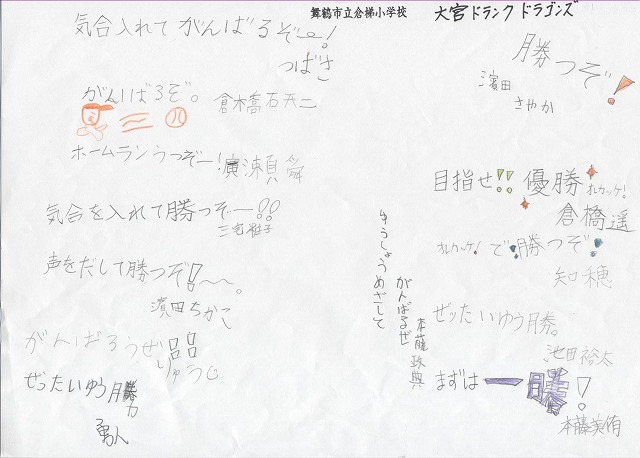 舞鶴市立倉梯小学校
大宮ドランクドラゴンズ
勝つぞ!
濱田
さやか
目指せ!!優勝 オレカッケ!
倉橋遥
オレカッケ!で勝つぞ!
知穂
ぜったいゆう勝。
池田裕太
まずは一勝!
本藤美侑
ゆうしょうめざして
がんばるぜ
本藤
気合入れてがんばるぞー!
つばさ
がんばるぞ。
倉木橋石天二
ホームランうつぞー!
廣瀬舜
気合を入れて勝つぞー!!
三宅雅子
声をだして勝つぞ!〜〜。
濱田ちかこ
がんばろうぜ!!
りゅうじ
ぜったいゆう勝